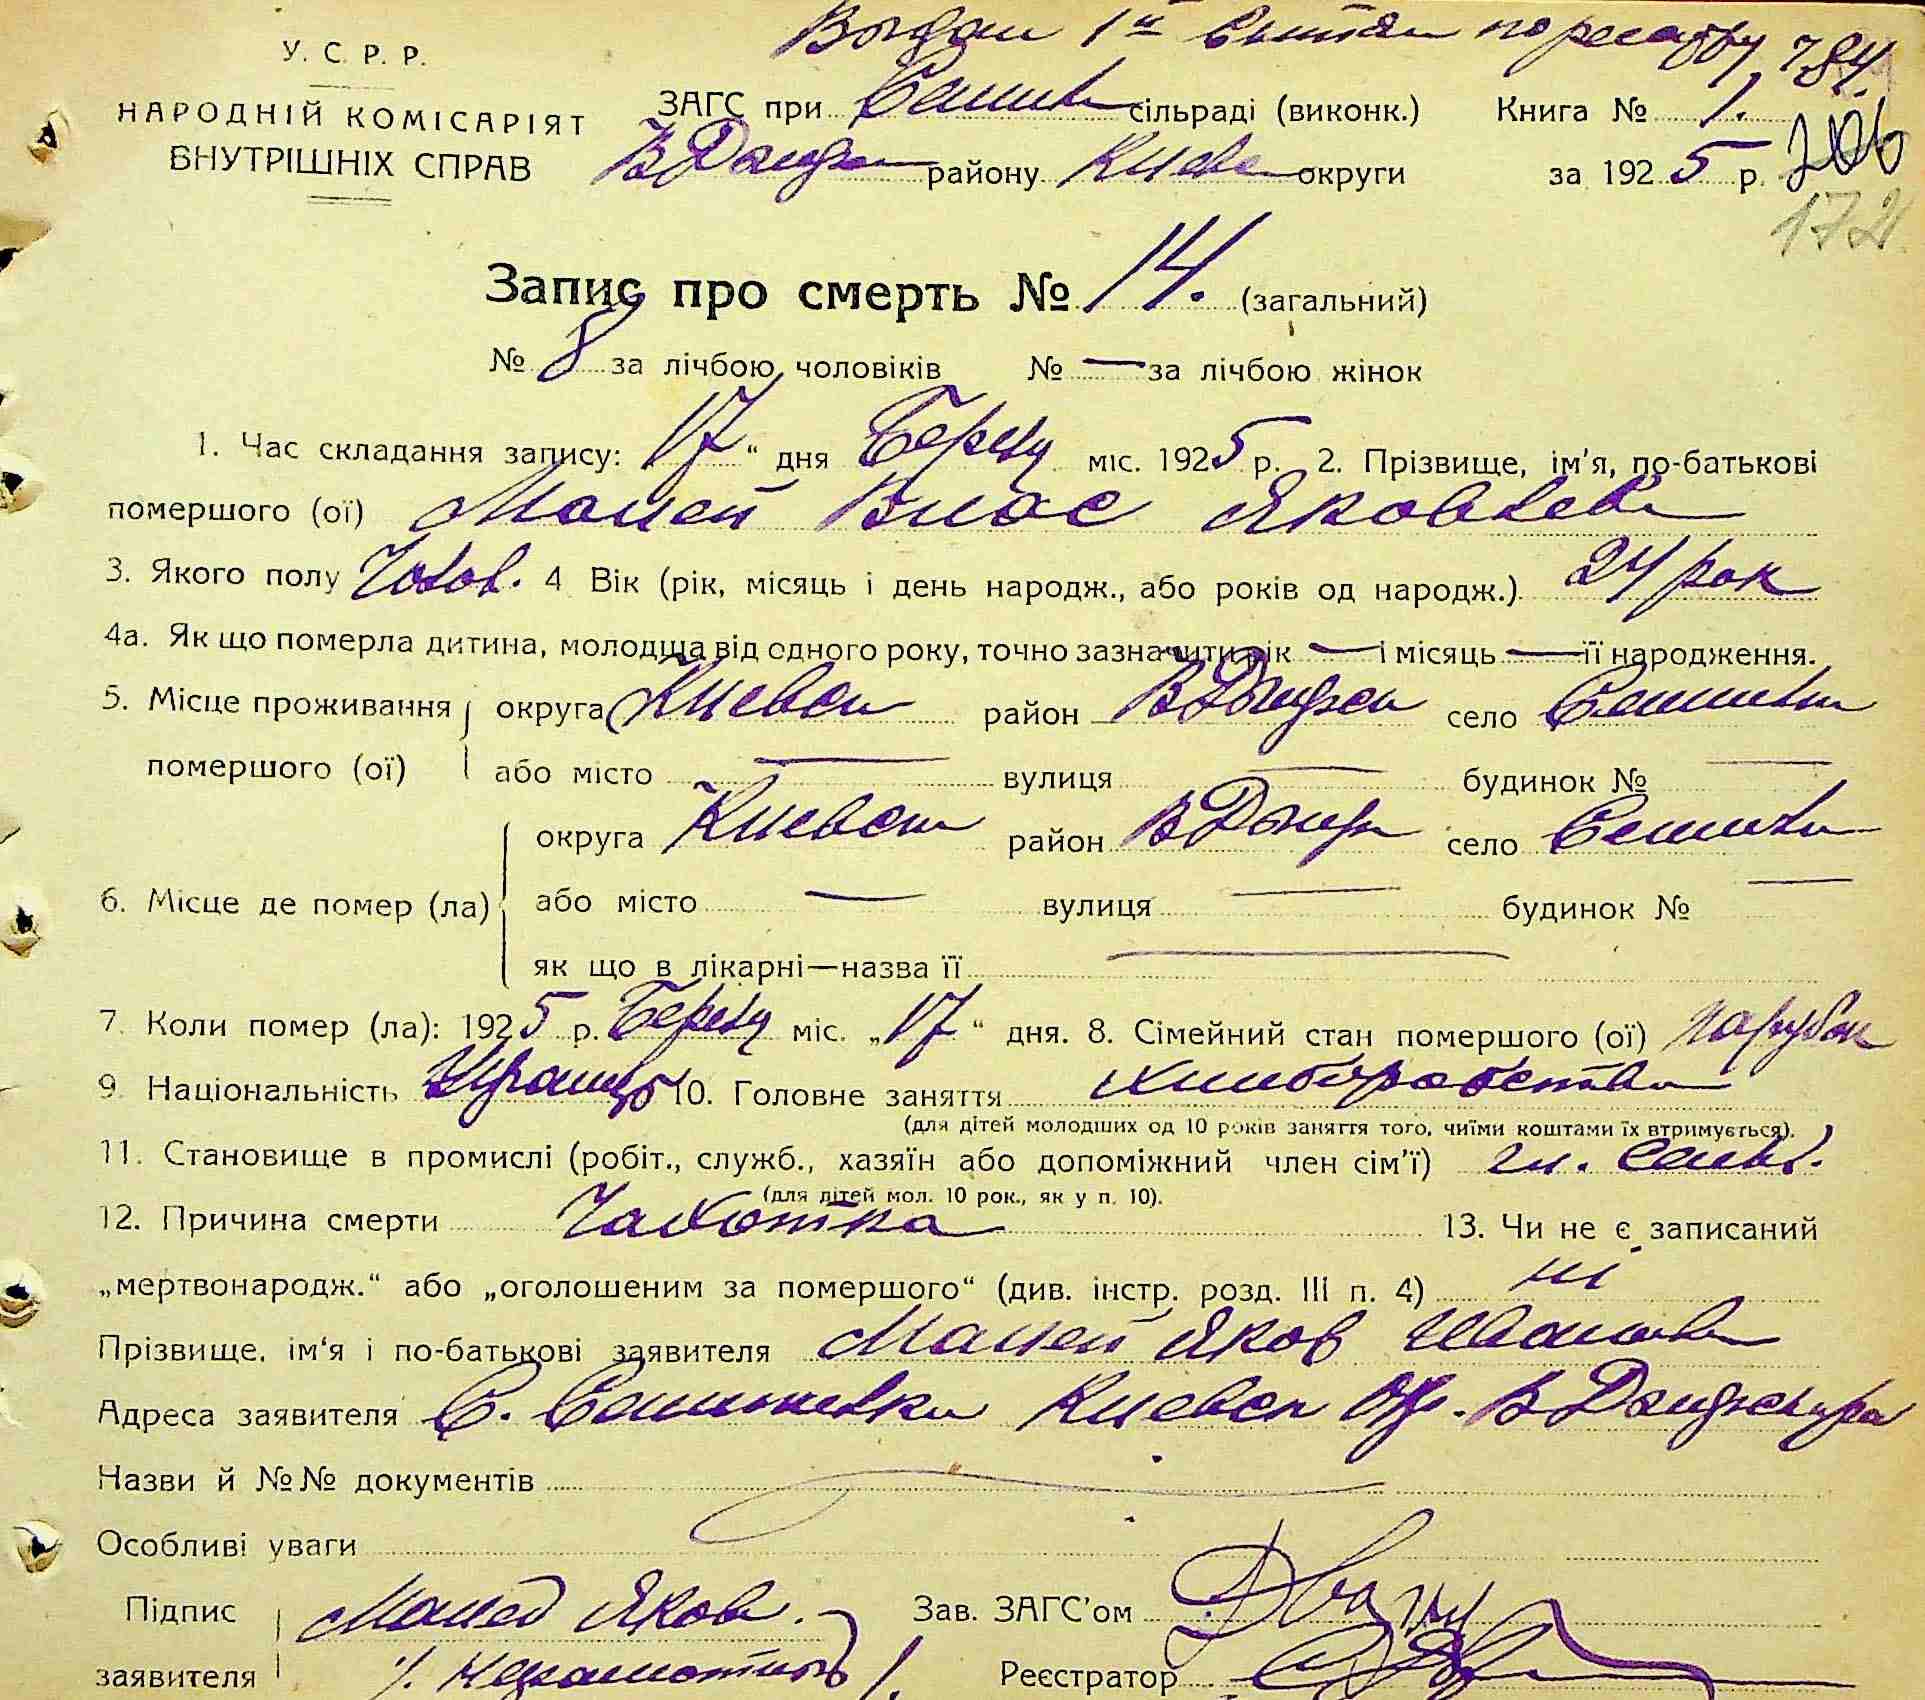 Выдан 1й 784.
У. С. Р. Р.
НАРОДНІЙ КОМІСАРІЯТ
ВНУТРІШНІХ СПРАВ
ЗАГС при сільраді (виконк.) Книга № 1.
району Києвс округи за 1925 р. 206
172
Запис про смерть № 14. (загальний)
№ 8 за лічбою чоловіків № — за лічбою жінок
1. Час складання запису: 17 " дня Березу міс. 1925 р. 2. Прізвище, ім'я, по-батькові
помершого (ої) Мацей Влас Яковлев
3. Якого полу Чолов. 4 Вік (рік, місяць і день народж., або років од народж.) 24 рок
4а. Як що померла дитина, молодща від одного року, точно зазначити рік — і місяць — її народження.
5. Місце проживання округа Киевск район село
помершого (ої) або місто — вулиця — будинок № —
округа Киевск район село
6. Місце де помер (ла) або місто — вулиця — будинок № —
як що в лікарні—назва її —
7. Коли помер (ла): 1925 р. Березу міс. „17 " дня. 8. Сімейний стан помершого (ої) парубок
9. Національність Украинць 10. Головне заняття хлиборобство
(для дітей молодших од 10 років заняття того, чиїми коштами їх втримується).
11. Становище в промислі (робіт., служб., хазяїн або допоміжний член сім'ї)
(для дітей мол. 10 рок., як у п. 10).
12. Причина смерти Чахотка 13. Чи не є записаний
„мертвонародж." або „оголошеним за помершого" (див. інстр. розд. III п. 4) ні
Прізвище, ім'я і по-батькові заявителя Мацей Яков Иванов
Адреса заявителя С. Киевск Окр.
Назви й №№ документів
Особливі уваги
Підпис Мацей Яков. Зав. ЗАГС'ом
заявителя Реєстратор